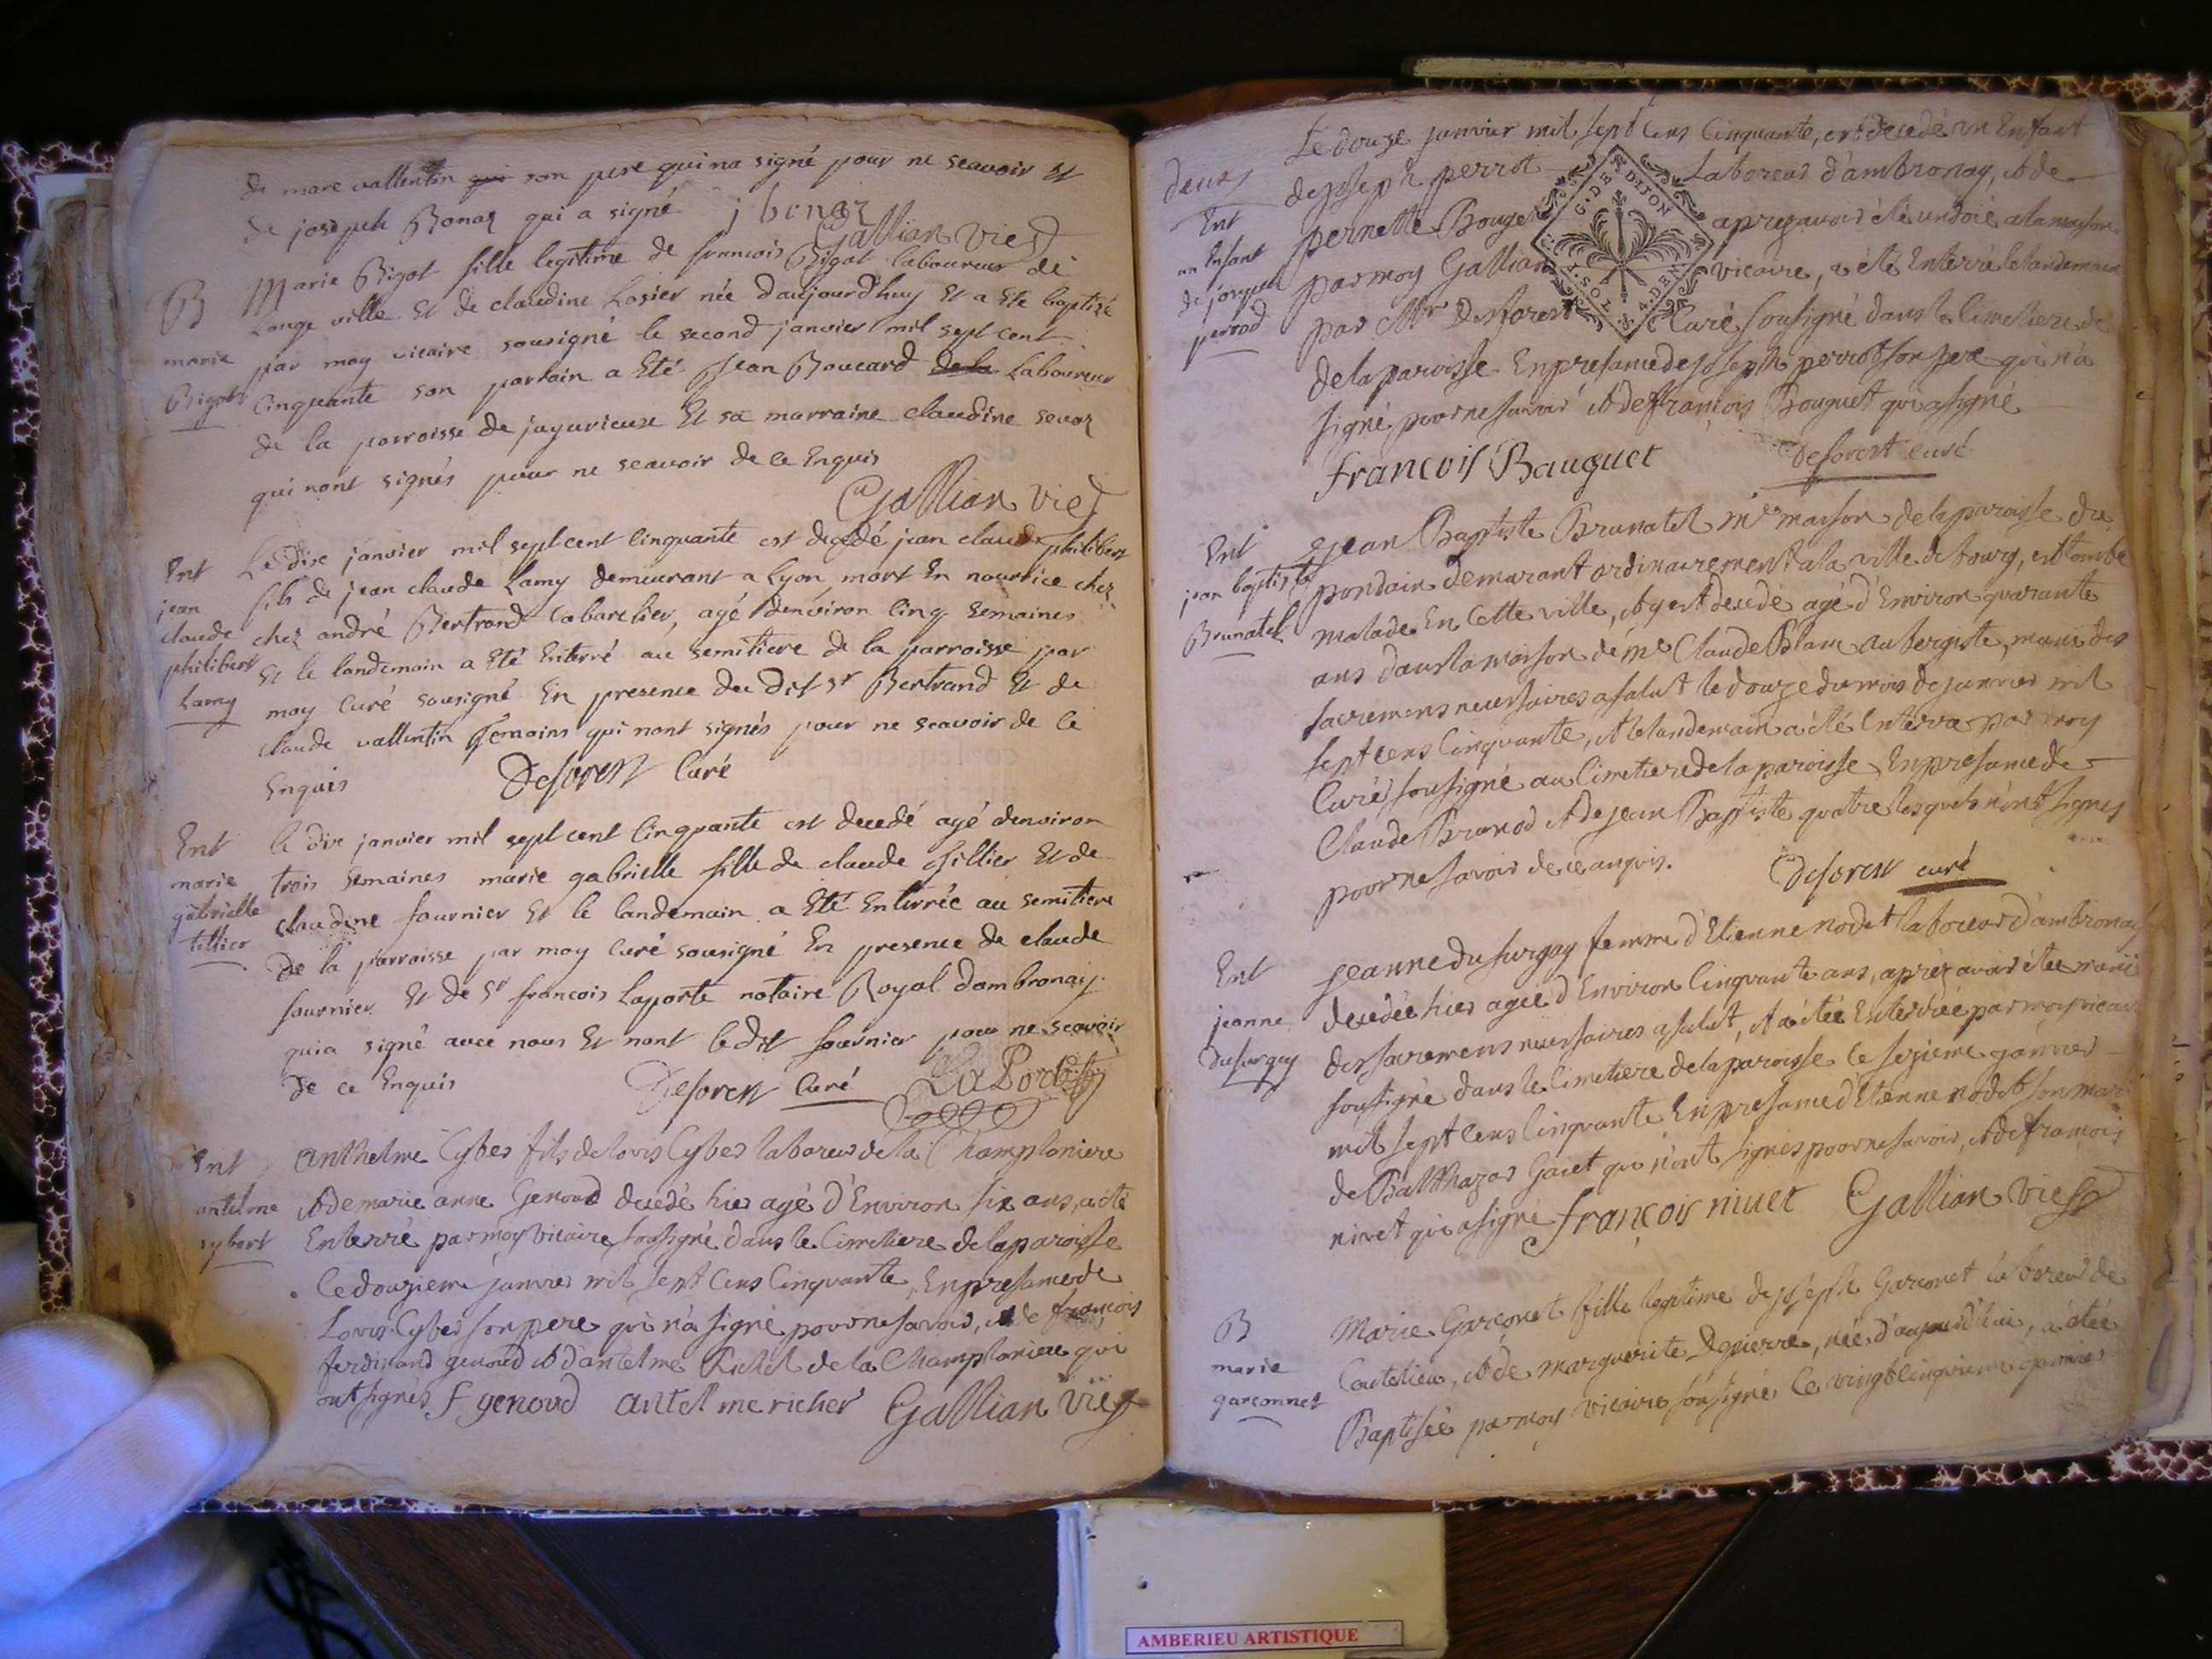 de marc vallentin qui son pere qui na signé pour ne scavoir et
de joseph Bonaz qui a signé j bonaz
Gallian vic
B
marie
Bigot
Marie Bigot fille legitime de francois Bigot laboureur de
Longe ville et de claudine Losier née d'aujourd'huy et a ete baptisé
par moy vicaire sousigné le second janvier mil sept cent
cinquante son parrain a eté Jean Boucard de la Laboureur
de la parroisse de jujurieux et sa marraine claudine
qui nont signés pour ne scavoir de ce Enquis
Gallian vic
Ent
jean
claude
philibert
Lamy
Le dix janvier mil sept cent cinquante est decedé jean claude philibert
fils de jean claude Lamy demeurant a Lyon mort En nourrice chez
chez andré Bertrand Cabaretier, agé denviron cinq semaines
Et le landemain a eté Enterré au semitiere de la parroisse par
moy curé sousigné En presence du dit sr Bertrand Et de
claude vallentin temoins qui nont signés pour ne scavoir de ce
Enquis Deforest Curé
Ent
marie
gabrielle
tillier
le dix janvier mil sept cent cinquante est decedé agé denviron
trois semaines marie gabrielle fille de claude tillier et de
claudine fournier Et le landemain a Eté Enterrée au semitiere
De la parroisse par moy curé sousigné En presence de claude
fournier Et de Sr francois Laporte notaire Royal dambronay
qui a signé avec nous Et nont ledit fournier pour ne scavoir
de ce Enquis Deforest Curé LaPorte
Ent
antelme
sybert
Anthelme Cybes fils de Louis Cybes laboreur de la Championiere
et de marie anne Genoud decedé hier agé d'Environ six ans, a été
Enterré par moy vicaire sousigné dans le Cimetiere de la paroisse
le douzieme janvier mil sept cens Cinquante, En presance de
Louis Cybes son pere qui n'a signé pour ne savoir, et de françois
ferdinand genoud et d'antelme Richet de la Championiere qui
ont signés f genoud antelme richer Gallian vic
deux
Ent
un Enfant
de joseph
perrod
Le douze janvier mil sept cens Cinquante, est decedé un Enfant
de joseph perrot Laboreur d'ambronay, et de
pernette Bouget apres avoir été undoié a la maison
par moy Gallian vicaire, a été Enterré le landemain
par Mr Deforest Curé sousigné dans le Cimetiere de
de la paroisse En presance de joseph perrot son pere qui n'a
signé pour ne savoir et de françois Bouguet qui a signé
G. DE DIJON
françois Bauguet Deforest curé
Ent
jean baptiste
Brunatel
Jean Baptiste Brunatel Me masson de la paroisse du
pondain demurant ordinairement a la ville de bourg, est tombé
malade En cette ville, et y est decedé agé d'Environ quarante
ans dans la maison de me Claude Blanc aubergiste, muni des
sacremens necessaires a salut le douze du mois de janvier mil
sept cens Cinquante, et le landemain a été Enterré par moy
Curé sousigné au Cimetiere de la paroisse En presance de
Claude Brunod et de jean Baptiste quatre lesquels n'ont signés
pour ne savoir de ce anquis. Deforest curé
Ent
jeanne
Dusurgey
Jeanne du surgay femme d'Etienne nodet laboreur d'ambronay
decedée hier agée d'Environ Cinquante ans, aprez avoir étée munie
des sacremens necessaires a salut, et a étée Enterrée par moy vicaire
sousigné dans le Cimetiere de la paroisse le sezieme janvier
mil sept cens Cinquante En presance d'Etienne nodet son mari
de Balthazar Gaiet qui n'ont signés pour ne savoir, et de françois
nivet qui a signé françois nivet Gallian vic
B
marie
garconnet
Marie Garconet fille legitime de joseph Garconet laboreur de
Coutelieu, et de marguerite Depierre, née d'aujourd'hui, a étée
Baptisée par moy vicaire sousigné le vingt cinquieme janvier
AMBERIEU ARTISTIQUE